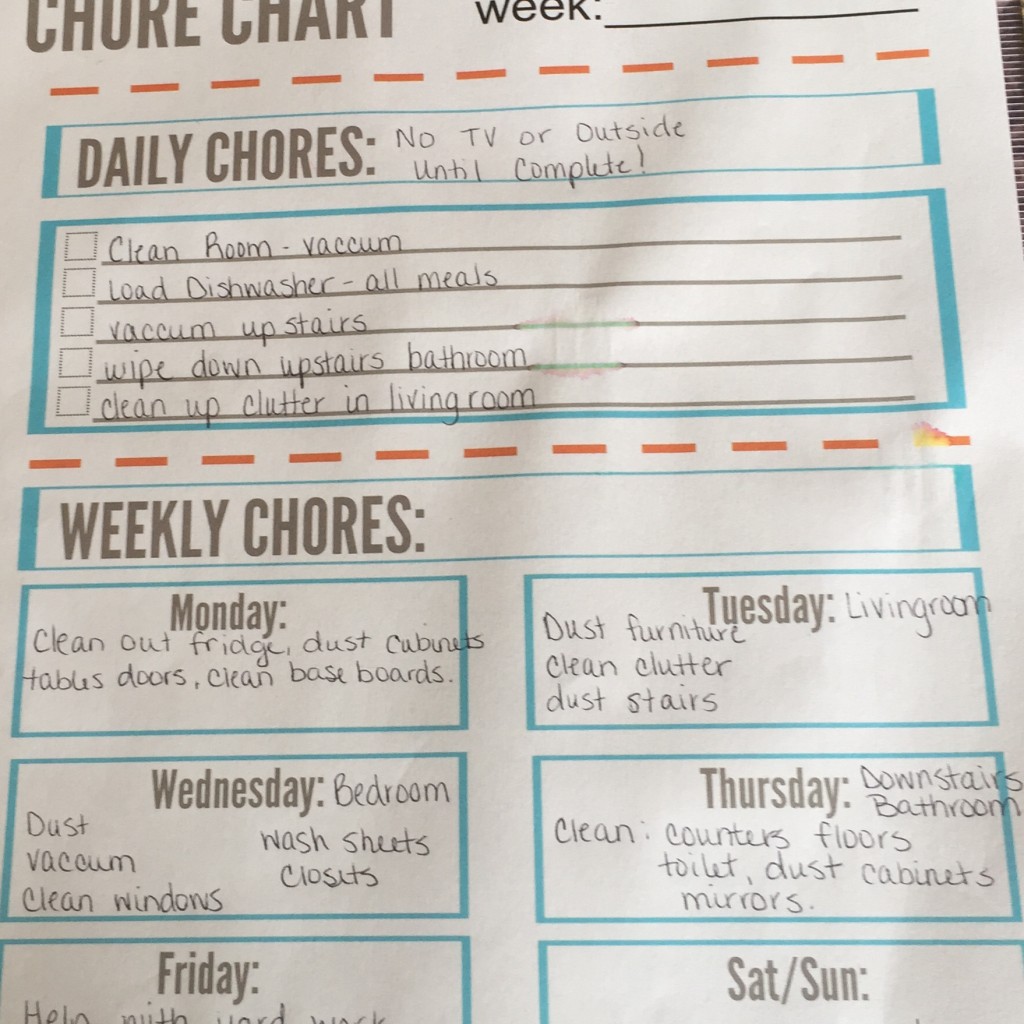 CHORE CHART week:
DAILY CHORES: No TV or Outside
Until Complete!
Clean Room - vaccum
Load Dishwasher - all meals
vaccum upstairs
wipe down upstairs bathroom
clean up clutter in livingroom
WEEKLY CHORES:
Monday:
Clean out fridge, dust cabinets
tables doors, clean base boards.
Tuesday: Livingroom
Dust furniture
clean clutter
dust stairs
Wednesday: Bedroom
Dust
vaccum
Clean windows
wash sheets
closets
Thursday: Downstairs
Bathroom
Clean: counters floors
toilet, dust cabinets
mirrors.
Friday:
Help with yard work
Sat/Sun: